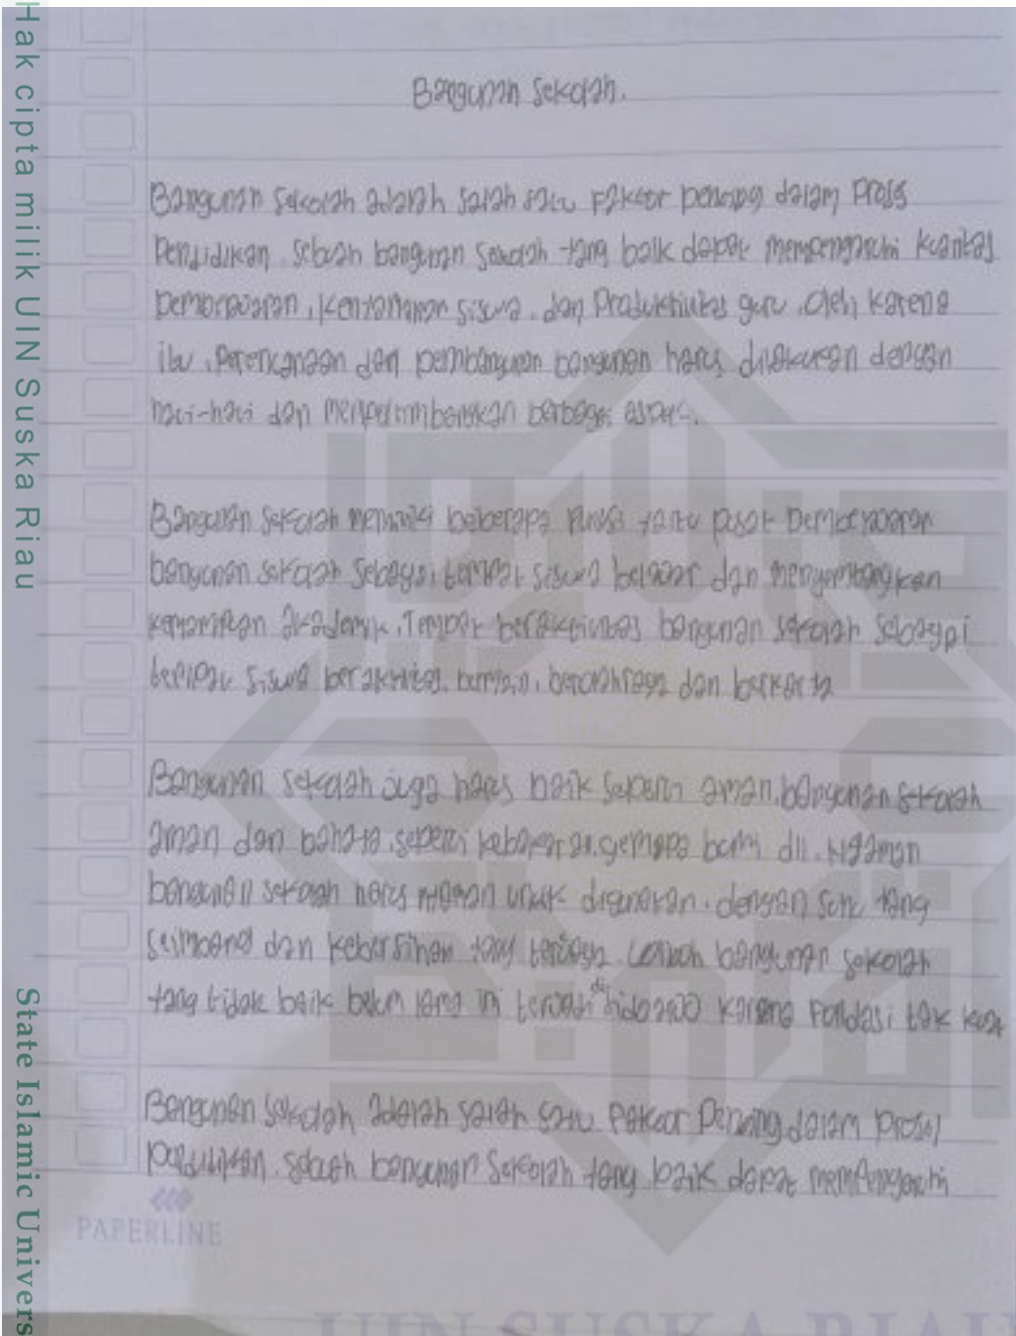 Bangunan Sekolah.
Bangunan Sekolah adalah salah satu Faktor penting dalam Proses
Pendidikan. Sebuah bangunan Sekolah yang baik dapat mempengaruhi kualitas
pembelajaran, kenyamanan siswa, dan Produktivitas guru. Oleh Karena
itu, Perencanaan dan pembangunan bangunan harus dilakukan dengan
hati-hati dan mempertimbangkan berbagai aspek.
Bangunan Sekolah memiliki beberapa Fungsi yaitu pusat Pembelajaran
bangunan sekolah sebagai tempat siswa belajar dan mengembangkan
kemampuan akademik. Tempat beraktivitas bangunan sekolah sebagai
tempat siswa beraktivitas, bermain, berolahraga dan berkarya
Bangunan sekolah juga harus baik seperti aman, bangunan sekolah
aman dan bahaya, seperti kebakaran, gempa bumi dll.
bangunan sekolah harus nyaman untuk digunakan. dengan suhu yang
seimbang dan kebersihan yang terjaga. Contoh bangunan sekolah
yang tidak baik belum lama ini terjadi di sidoarjo karena pondasi tak kuat
Bangunan Sekolah adalah salah satu Faktor Penting dalam proses
pendidikan. sebuah bangunan Sekolah yang baik dapat mempengaruhi
PAPERLINE
Hak cipta milik UIN Suska Riau
State Islamic Univers
UIN SUSKA RIAU